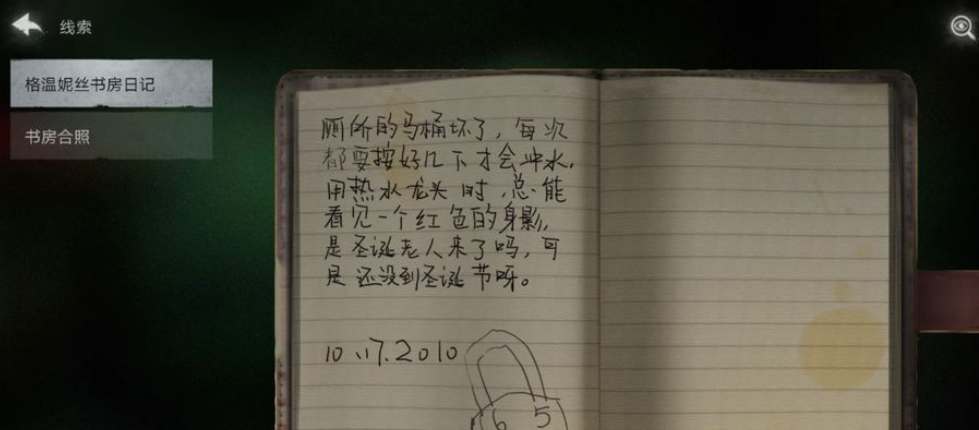 线索
格温妮丝书房日记
书房合照
厕所的马桶坏了，每次
都要按好几下才会冲水，
用热水龙头时，总能
看见一个红色的身影，
是圣诞老人来了吗，可
是还没到圣诞节呀。
10.17.2010
6 5